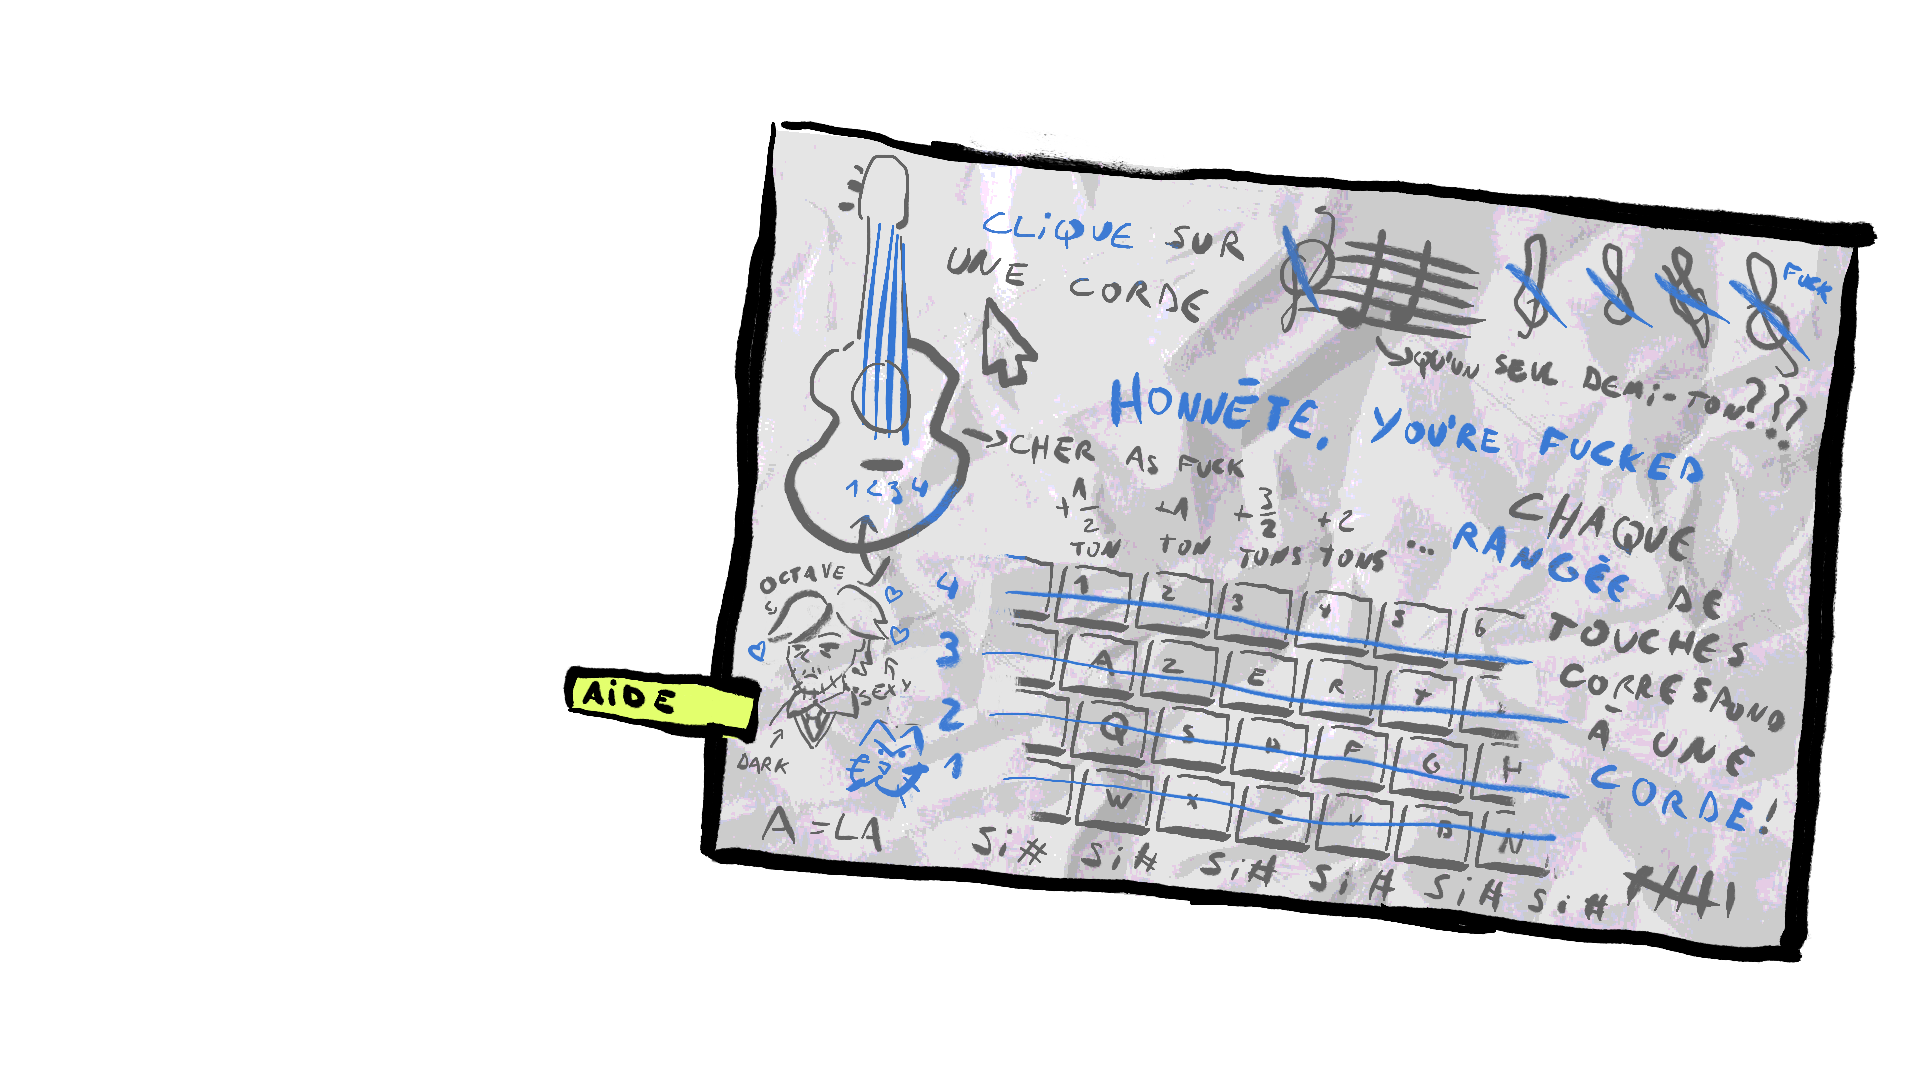 CLIQUE SUR
UNE CORDE
FUCK
QU'UN SEUL DEMI-TON???...
HONNÊTE, YOU'RE FUCKED
CHER AS FUCK
1 2 3 4
+1/2 TON
+1 TON
+3/2 TONS
+2 TONS
...
CHAQUE
RANGÉE DE
TOUCHES
CORRESPOND
À UNE
CORDE!
OCTAVE
SEXY
DARK
AIDE
4 1 2 3 4 5 6
3 A Z E R T
2 Q S D F G H
1 W X C V B N
A = LA
Si# Si# Si# Si# Si# Si#